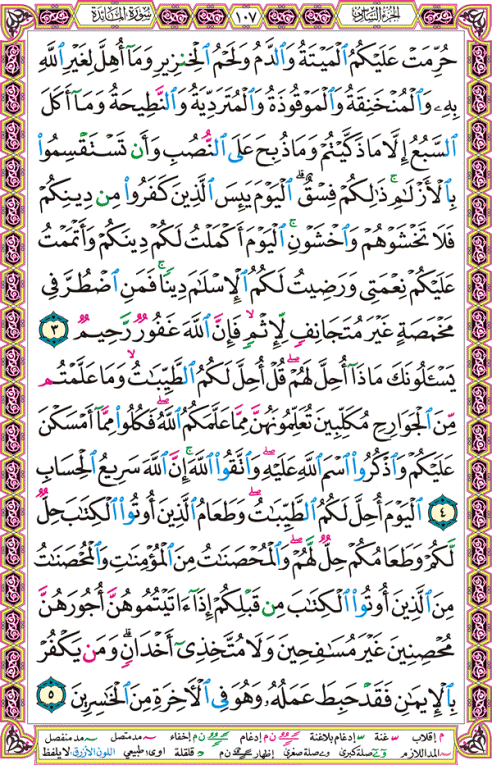 الجزء السادس ١٠٧ سورة المائدة
حُرِّمَتْ عَلَيْكُمُ ٱلْمَيْتَةُ وَٱلدَّمُ وَلَحْمُ ٱلْخِنزِيرِ وَمَآ أُهِلَّ لِغَيْرِ ٱللَّهِ
بِهِۦ وَٱلْمُنْخَنِقَةُ وَٱلْمَوْقُوذَةُ وَٱلْمُتَرَدِّيَةُ وَٱلنَّطِيحَةُ وَمَآ أَكَلَ
ٱلسَّبُعُ إِلَّا مَا ذَكَّيْتُمْ وَمَا ذُبِحَ عَلَى ٱلنُّصُبِ وَأَن تَسْتَقْسِمُوا۟
بِٱلْأَزْلَٰمِ ۚ ذَٰلِكُمْ فِسْقٌ ۗ ٱلْيَوْمَ يَئِسَ ٱلَّذِينَ كَفَرُوا۟ مِن دِينِكُمْ
فَلَا تَخْشَوْهُمْ وَٱخْشَوْنِ ۚ ٱلْيَوْمَ أَكْمَلْتُ لَكُمْ دِينَكُمْ وَأَتْمَمْتُ
عَلَيْكُمْ نِعْمَتِى وَرَضِيتُ لَكُمُ ٱلْإِسْلَٰمَ دِينًا ۚ فَمَنِ ٱضْطُرَّ فِى
مَخْمَصَةٍ غَيْرَ مُتَجَانِفٍ لِّإِثْمٍ ۙ فَإِنَّ ٱللَّهَ غَفُورٌ رَّحِيمٌ ٣
يَسْـَٔلُونَكَ مَاذَآ أُحِلَّ لَهُمْ ۖ قُلْ أُحِلَّ لَكُمُ ٱلطَّيِّبَٰتُ ۙ وَمَا عَلَّمْتُم
مِّنَ ٱلْجَوَارِحِ مُكَلِّبِينَ تُعَلِّمُونَهُنَّ مِمَّا عَلَّمَكُمُ ٱللَّهُ ۖ فَكُلُوا۟ مِمَّآ أَمْسَكْنَ
عَلَيْكُمْ وَٱذْكُرُوا۟ ٱسْمَ ٱللَّهِ عَلَيْهِ ۖ وَٱتَّقُوا۟ ٱللَّهَ ۚ إِنَّ ٱللَّهَ سَرِيعُ ٱلْحِسَابِ
٤ ٱلْيَوْمَ أُحِلَّ لَكُمُ ٱلطَّيِّبَٰتُ ۖ وَطَعَامُ ٱلَّذِينَ أُوتُوا۟ ٱلْكِتَٰبَ حِلٌّ
لَّكُمْ وَطَعَامُكُمْ حِلٌّ لَّهُمْ ۖ وَٱلْمُحْصَنَٰتُ مِنَ ٱلْمُؤْمِنَٰتِ وَٱلْمُحْصَنَٰتُ
مِنَ ٱلَّذِينَ أُوتُوا۟ ٱلْكِتَٰبَ مِن قَبْلِكُمْ إِذَآ ءَاتَيْتُمُوهُنَّ أُجُورَهُنَّ
مُحْصِنِينَ غَيْرَ مُسَٰفِحِينَ وَلَا مُتَّخِذِىٓ أَخْدَانٍ ۗ وَمَن يَكْفُرْ
بِٱلْإِيمَٰنِ فَقَدْ حَبِطَ عَمَلُهُۥ وَهُوَ فِى ٱلْءَاخِرَةِ مِنَ ٱلْخَٰسِرِينَ ٥